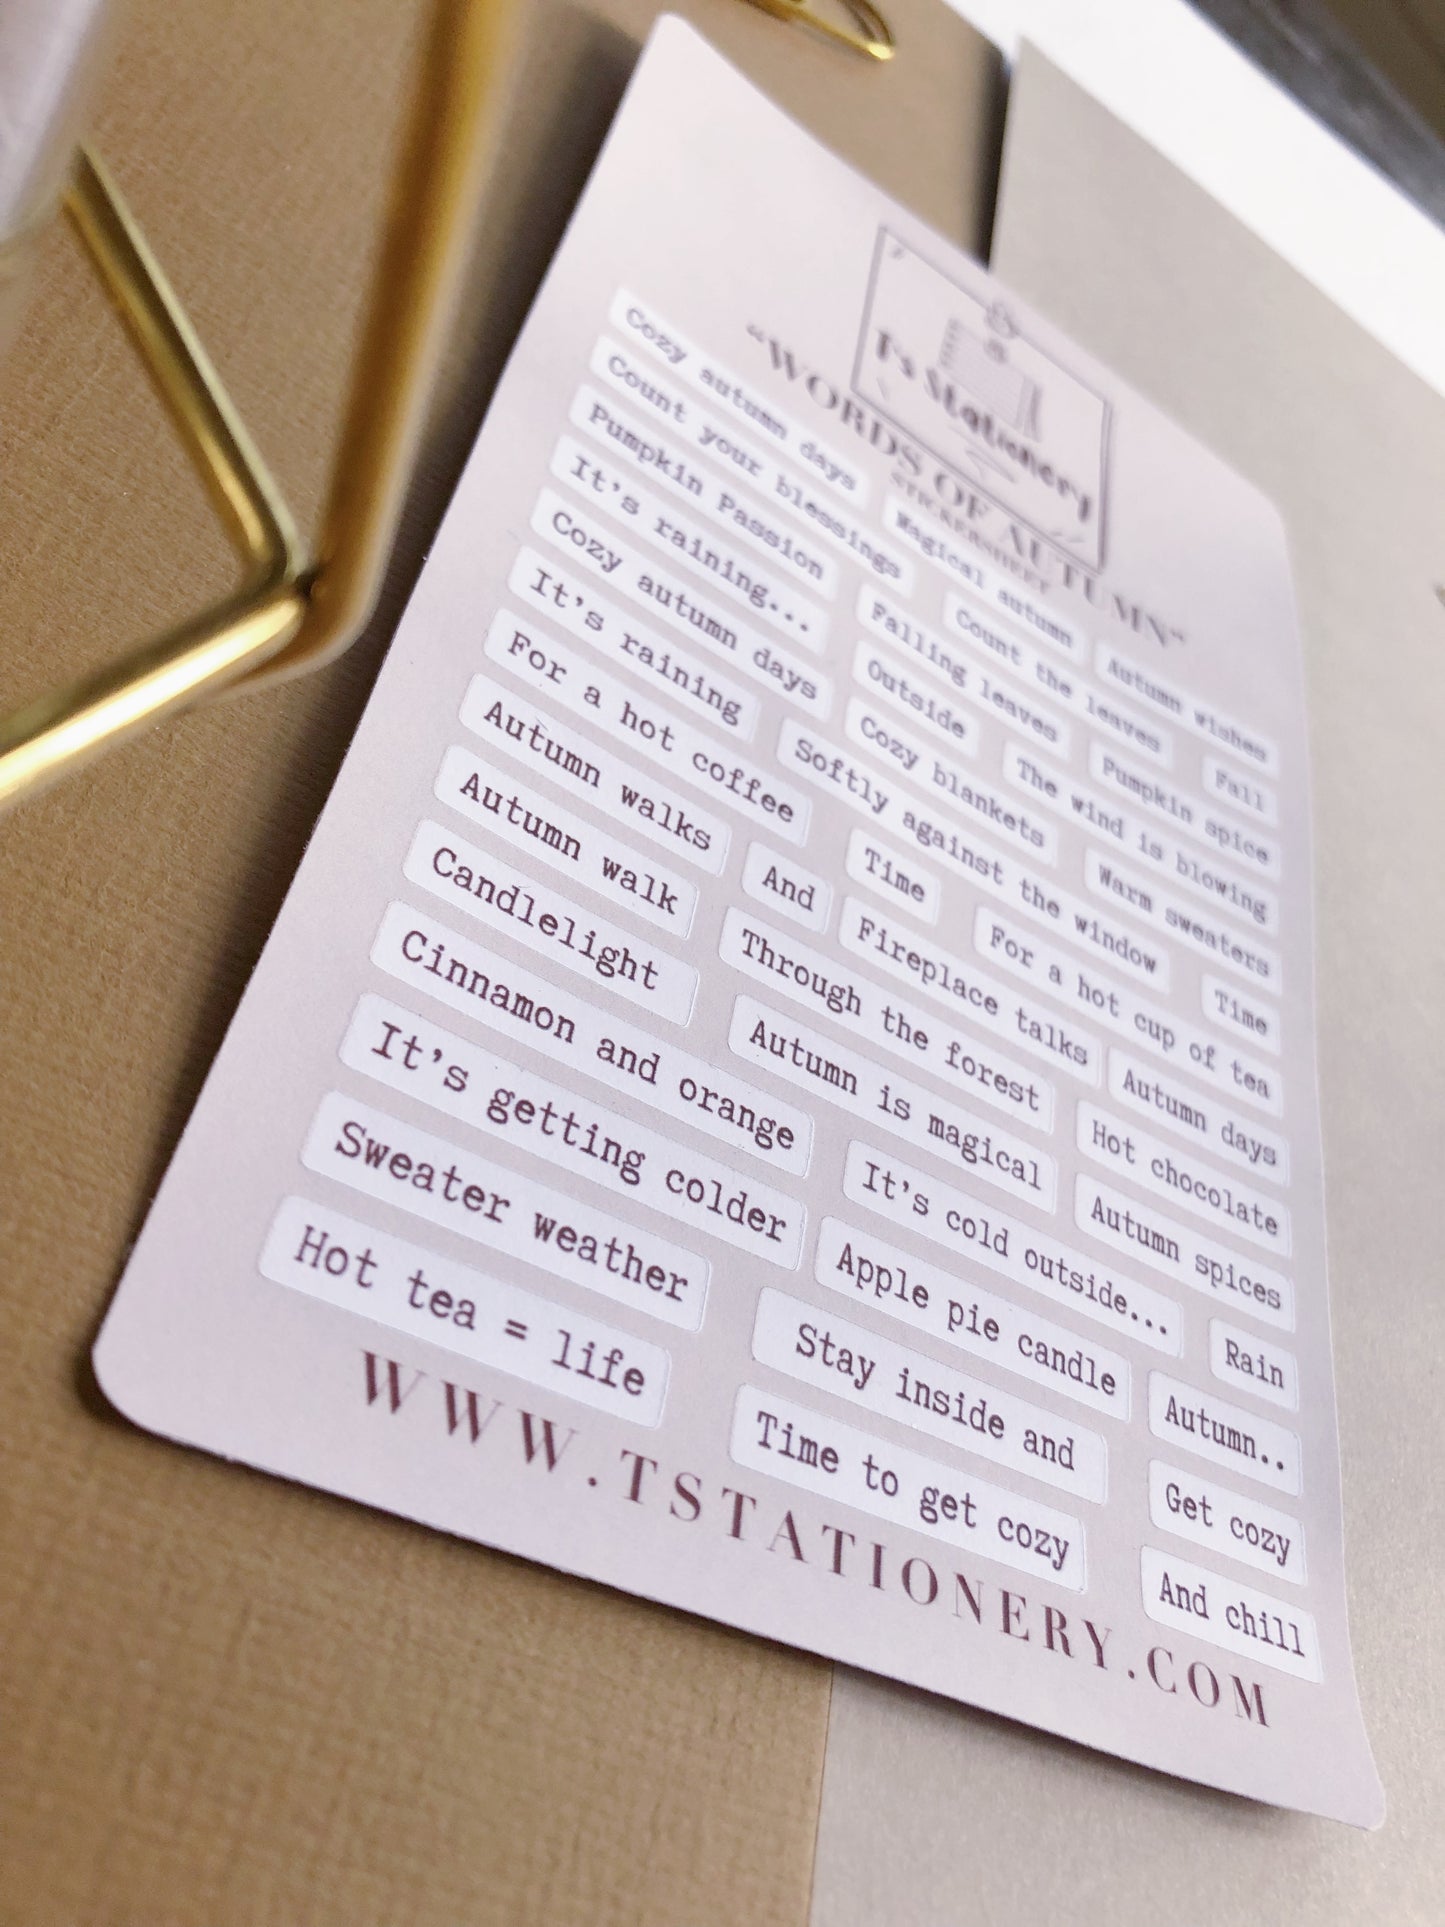 T's Stationery
"WORDS OF AUTUMN"
STICKERSHEET
Cozy autumn days
Magical autumn
Autumn wishes
Count your blessings
Count the leaves
Fall
Pumpkin Passion
Falling leaves
Pumpkin spice
It's raining...
Outside
The wind is blowing
Cozy autumn days
Cozy blankets
Warm sweaters
It's raining
Softly against the window
Time
For a hot coffee
Time
For a hot cup of tea
Autumn walks
And
Fireplace talks
Autumn days
Autumn walk
Through the forest
Hot chocolate
Candlelight
Autumn is magical
Autumn spices
Cinnamon and orange
It's cold outside...
Rain
It's getting colder
Apple pie candle
Autumn..
Sweater weather
Stay inside and
Get cozy
Hot tea = life
Time to get cozy
And chill
WWW.TSTATIONERY.COM